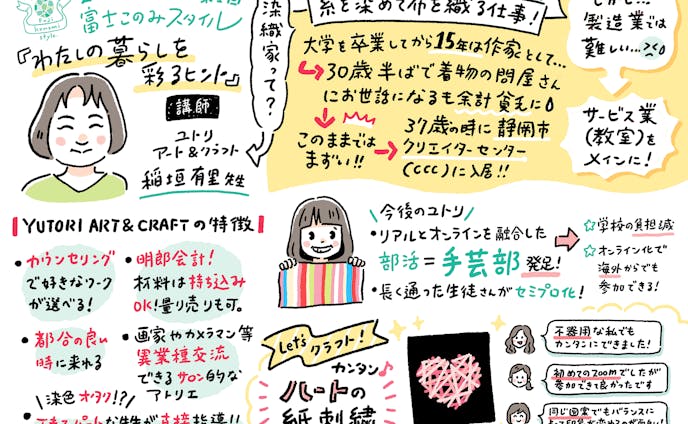 Fuji
Konomi
style
富士このみスタイル
『わたしの暮らしを
彩るヒント』
講師
ユトリ
アート&クラフト
稲垣有里先生
染織家って?
糸を染めて布を織る仕事!
大学を卒業してから15年は作家として…
30歳半ばで着物の問屋さん
にお世話になるも余計貧乏に
このままでは
まずい!!
37歳の時に静岡市
クリエイターセンター
(CCC)に入居!!
製造業では
難しい…
サービス業
(教室)を
メインに!
YUTORI ART&CRAFTの特徴
・カウンセリング
で好きなワーク
が選べる!
・明朗会計!
材料は持ち込み
OK!量り売りも可。
・都合の良い
時に来れる
・画家やカメラマン等
異業種交流
できるサロン的な
アトリエ
\染色オタク!?/
今後のユトリ
・リアルとオンラインを融合した
部活=手芸部発足!
・長く通った生徒さんがセミプロ化!
☆学校の負担減
☆オンライン化で
海外からでも
参加できる!
Let's
クラフト!
カンタン♪
ハートの
紙刺繍
不器用な私でも
カンタンにできました!
初めてのZoomでしたが
参加できて良かったです
同じ図案でもバランスに